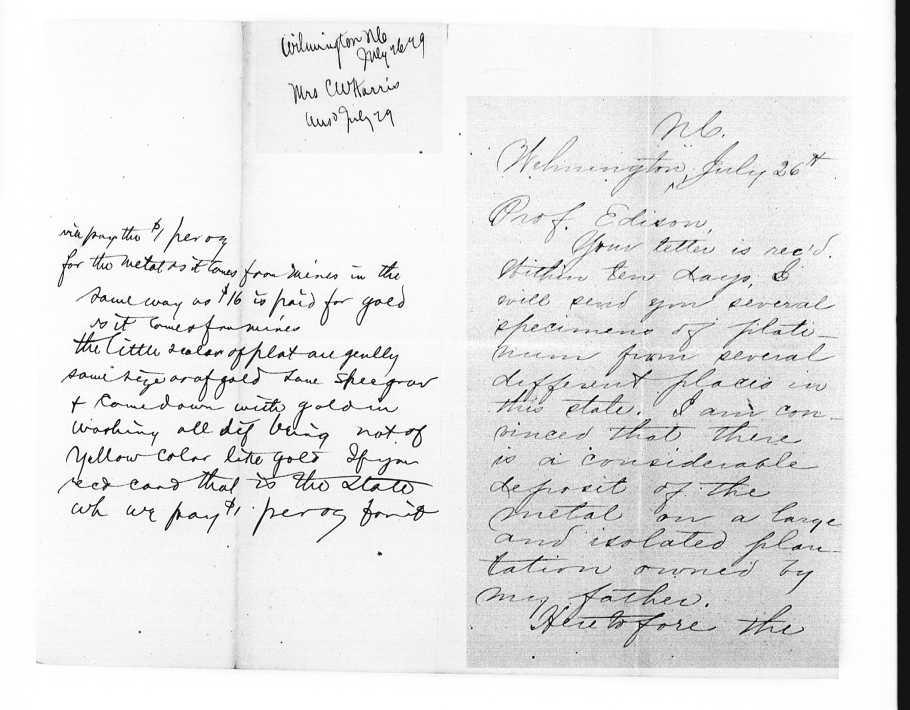 Wilmington NC
July 26 79
Mrs C W Harris
Ansd July 29
will pay the $1 per oz
for the metal as it comes from mines in the
same way as $16 is paid for gold
as it comes from mines
the little scales of plat are genlly
same size as of gold same spec grav
+ come down with gold in
washing all dif being not of
Yellow color like gold If you
recd card that is the state
wh we pay $1. per oz for it
N.C.
Wilmington, July 26th
Prof. Edison,
Your letter is rec'd.
Within ten days, I
will send you several
specimens of plati-
num from several
different places in
this state. I am con-
vinced that there
is a considerable
deposit of the
metal on a large
and isolated plan-
tation owned by
my father.
Heretofore the